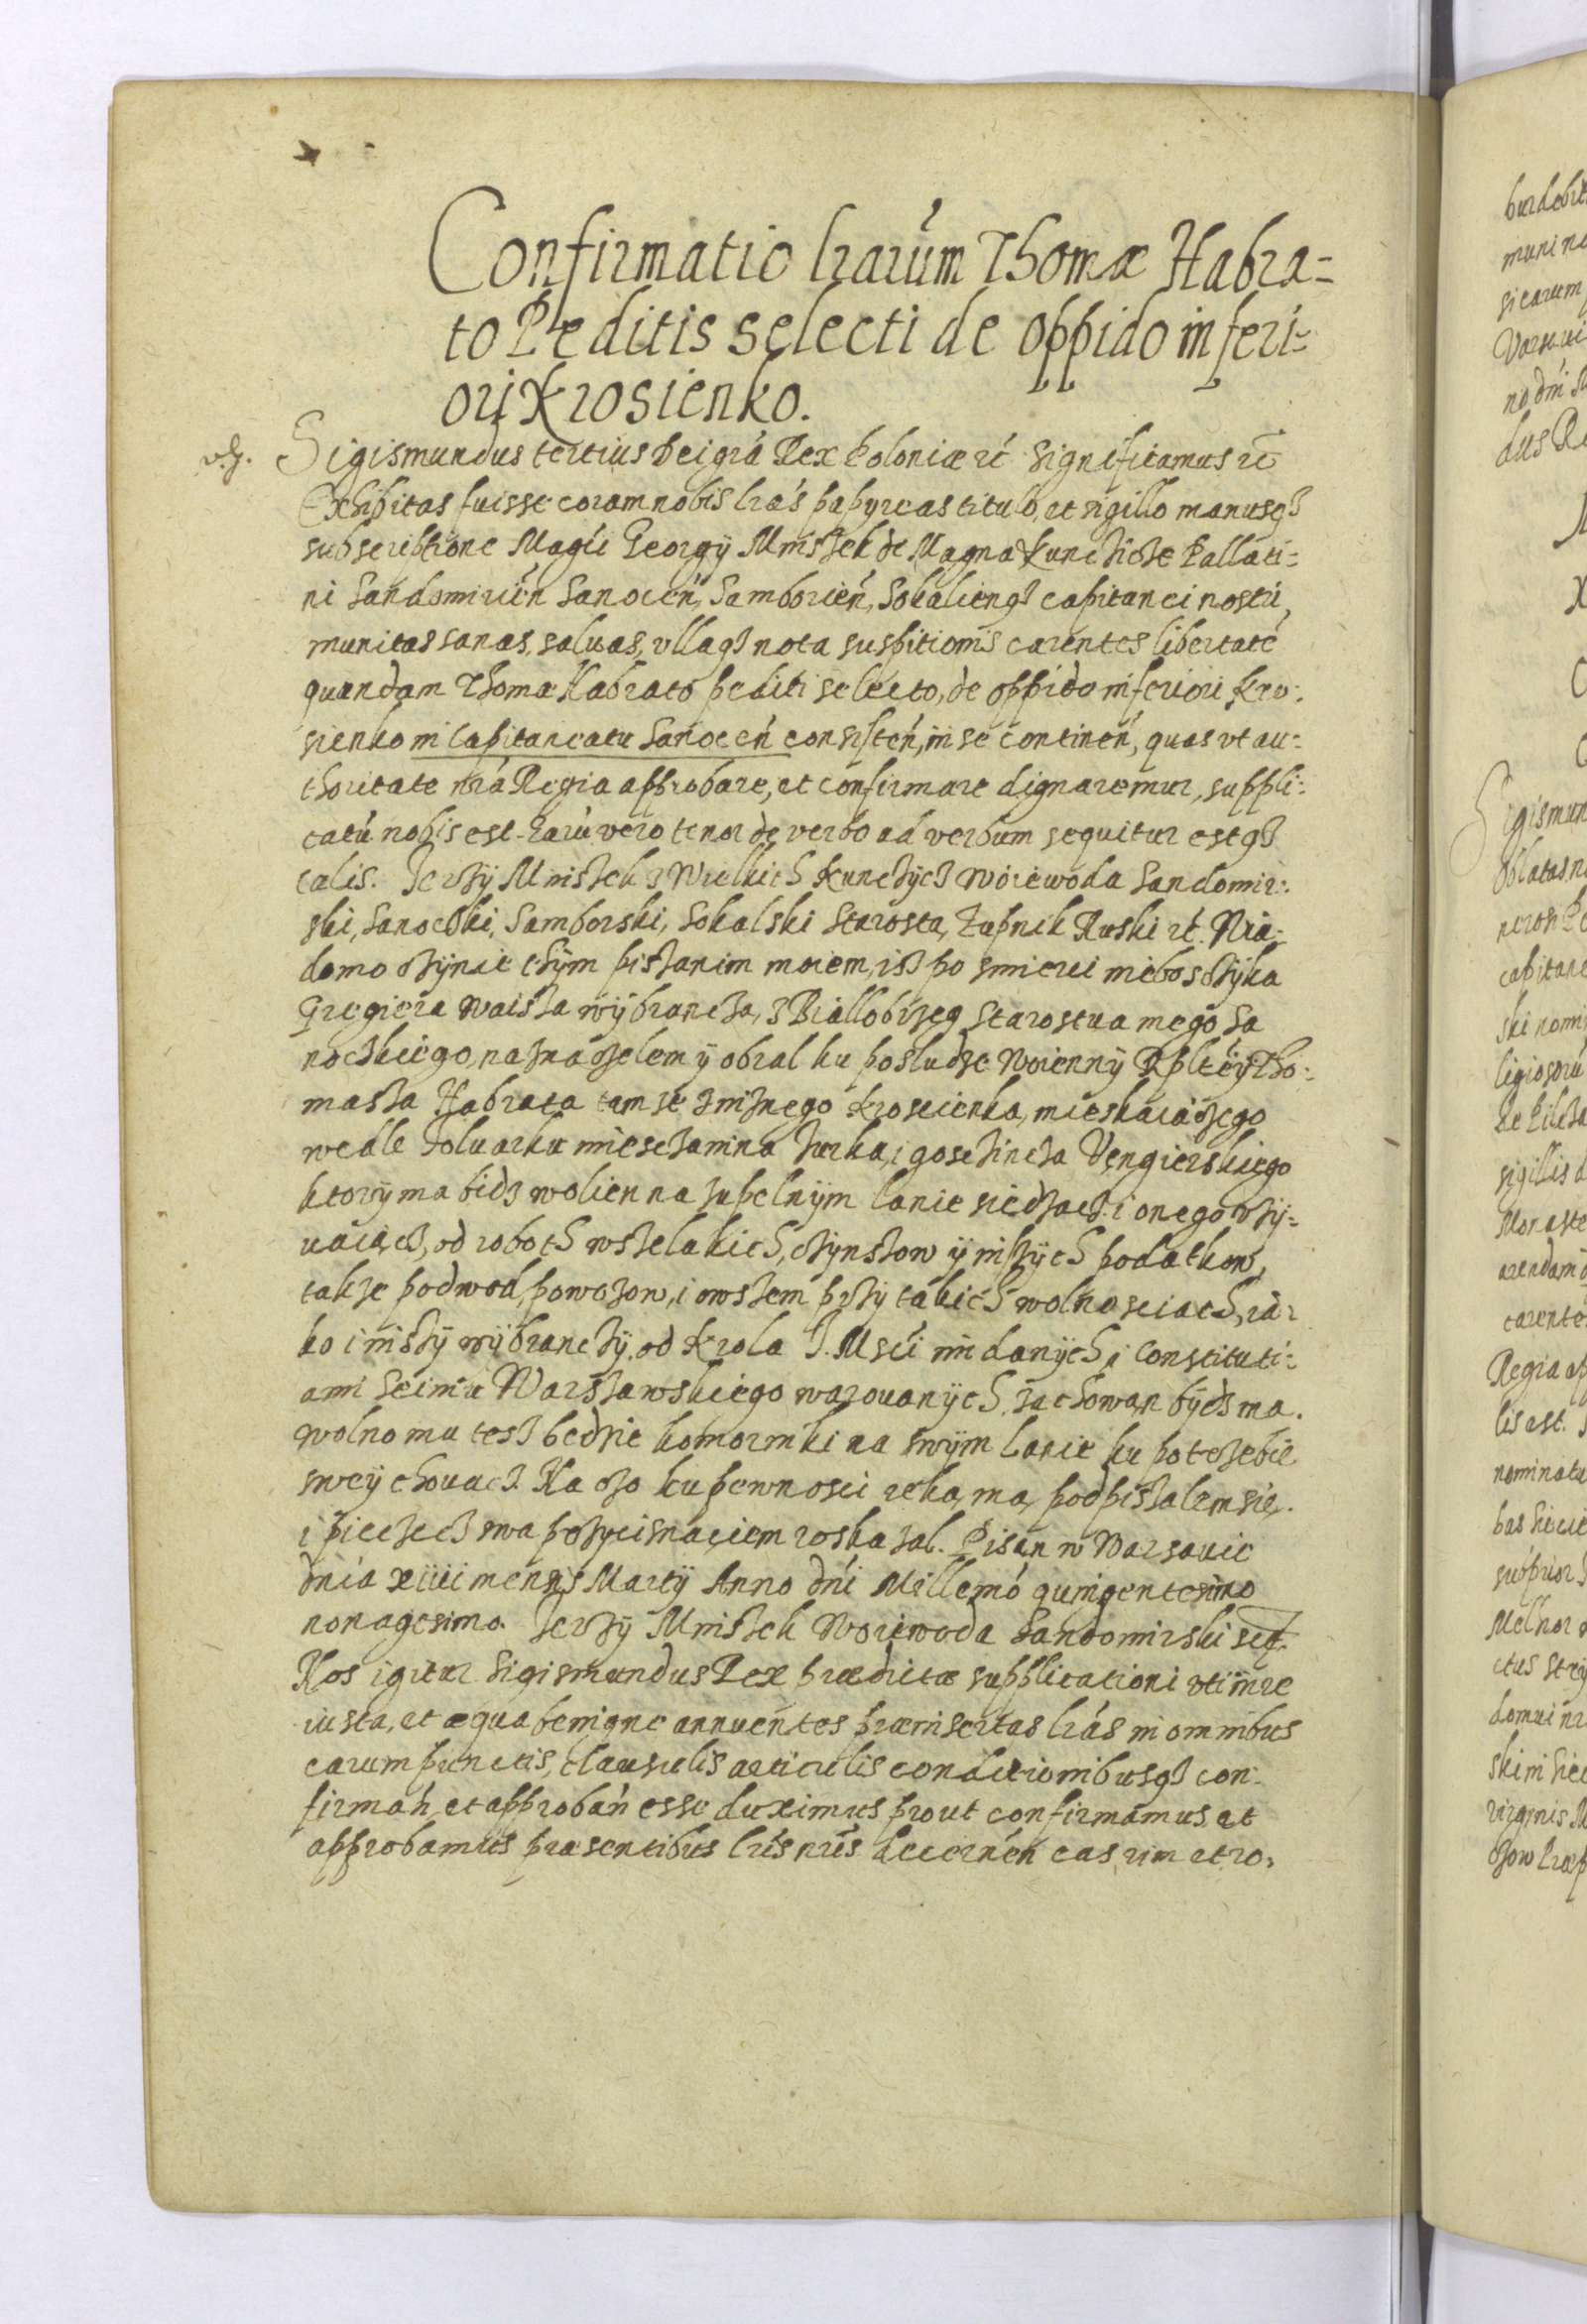 Confirmatio lrarum Thomæ Habra=
to Peditis selecti de oppido inferi=
ori Krosienko.
Sigismundus tertius Dei grá Rex Poloniæ rć significamus rć
Exhibitas fuisse coram nobis lrás papyreas titulo, et sigillo manusqз
subscriptione Magci Georgÿ Mniszek de Magna Kunczicze Pallati=
ni Sandomirień Sanoceń, Samborień, Sokalienqз capitanei nostri,
munitas sanas, saluas, vllaqз nota suspitionis carentes libertaté
quandam Thomæ Habrato pediti selecto, de oppido inferiori Kro=
sienko in Capitaneatu Sanoceń consisteń, in se contineń, quas vt au=
thoritate nrá Regia approbare, et confirmare dignaremur, suppli=
catú nobis est. Earú vero tenor de verbo ad verbum sequitur estqз
talis. Jerzÿ Mniszek z Wielkich Kunczÿcz Woiewoda Sandomir=
ski, Sanoczki, Samborski, Sokalski Starosta, Zupnik Ruski rć. Wia=
domo czÿnie thÿm piszanim moiem, isz po smierci niebosczÿka
Gregiera Waissa wÿbrancza, z Biallobrzeg Starostwa mego Sa
noczkiego, naznaczelem ÿ obral ku posludze Woiennÿ Rpltéÿ Tho=
masza Habrata tamze z niznego Kroscienka, mieskaiączego
wedle Foluarku miesczanina Jurka, i gosczincza Vęngierskiego
ktorÿ ma bidz wolien na zupelnÿm lanie siedzacz i onego vzÿ=
uaiącz, od roboth wszelakich, czÿnszow ÿ inszÿch podatkow,
takze podwod, powozow, i owszem przÿ takich wolnosciach, ia=
ko i inszÿ wÿbranczÿ od Krola J. Msci im danÿch i Constituti=
ami Seimu Warszawskiego warouanÿch, zachowan bÿdz ma.
Wolno mu tesz będzie komorniki na swÿm lanie ku potrzebie
sweÿ chouacz. Na czo ku pewnosci ręką, mą, podpiszalem się.
i pieczęcz swą przÿcisnąciem roskazal. Pisan w Warsauie
dnia xiiii mensis Martÿ Anno dńi Millemó quingentesimo
nonagesimo. Jerzÿ Mniszek Woiewoda Sandomirski sct.
Nos igitur Sigismundus Rex prædictæ supplicationi vti in re
iusta, et æqua benigne annuentes præinsertas lrás in omnibus
earum punctis, clausulis articulis conditionibusqз con=
firmań, et approbań esse duximus prout confirmamus et
approbamus præsentibus lrís nrís decerneń eas vim et ro=